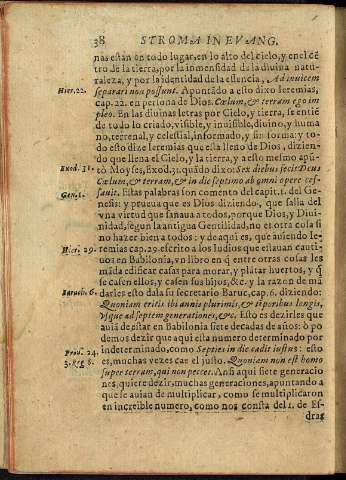 38 STROMA IN EVANG.
nas están en todo lugar, en lo alto del cielo, y en el cẽ
tro de la tierra, por la inmensidad de la diuina natu-
raleza, y por la identidad de la essencia, Ad inuicem
Hier. 22. separari non possunt. Apontãdo a esto dixo Ieremias,
cap. 22. en persona de Dios. Cœlum, & terram ego im
pleo. En las diuinas letras por Cielo, y tierra, se entiẽ
de todo lo criado, visible, y inuisible, diuino, y huma
no, terrenal, y celestial, informado, y sin forma: y to-
do esto dize Ieremias que esta lleno de Dios, dizien-
do que llena el Cielo, y la tierra, y a esto mesmo apũ-
Exod. 31. tò Moyses, Exod. 31. quãdo dixo: Sex diebus fecit Deus
Cœlum, & terram, & in die septimo ab omni opere ces-
Gen. 1. sauit. Estas palabras son comento del capit. 1. del Ge-
nesis: y prueua que es Dios diziendo, que salia del
vna virtud que sanaua a todos, porque Dios, y Diui-
nidad, segun la antigua Gentilidad, no es otra cosa si
no hazer bien a todos: y de aqui es, que ausendo Ie-
Hier. 29. remias cap. 29. escrito a los Iudios que estauan cauti
uos en Babilonia, vn libro en q̃ entre otras cosas les
mãda edificar casas para morar, y plãtar huertos, y q̃
se casen ellos, y casen sus hijos, &c. y la razon de mã
Baruch. 6. darles esto da la su secretario Baruc, cap. 6. diziendo:
Quoniam eritis ibi annis plurimis, & tẽporibus longis,
Vsque ad septem generationes, &c. Esto es dezirles que
auiã de estar en Babilonia siete decadas de años: ò po
demos dezir que aqui esta numero determinado por
Prou. 24. indeterminado, como Septies in die cadit iustus: esto
3. Reg 8. es, muchas vezes cae el justo. Quoniam non est homo
super terram, qui non peccet. Ansi aqui siete generacio
nes, quiere dezir, muchas generaciones, apuntando a
que se auian de multiplicar, como se multiplicaron
en increible numero, como nos consta del 1. de Es-
dras